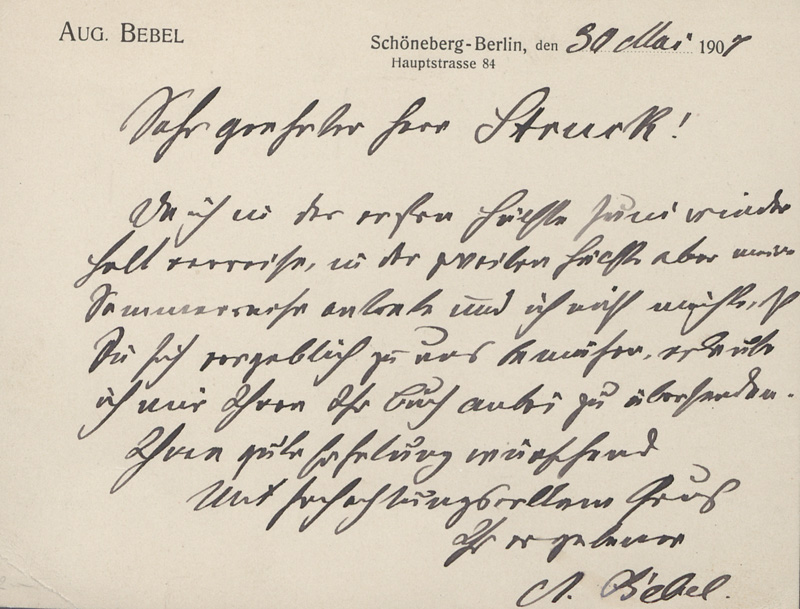 AUG. BEBEL
Schöneberg-Berlin, den 30 Mai 1907
Hauptstrasse 84
Sehr geehrter Herr Struck!
Da ich in der ersten Hälfte Juni wieder
holt verreise, in der zweiten Hälfte aber meine
Sommerreise antrete und ich nicht möchte, daß
Sie sich vergeblich zu uns bemühen, erlaube
ich mir Ihnen Ihr Buch anbei zu übersenden.
Ihnen gute Erholung wünschend
Mit hochachtungsvollem Gruß
Ihr ergebener
A. Bebel.